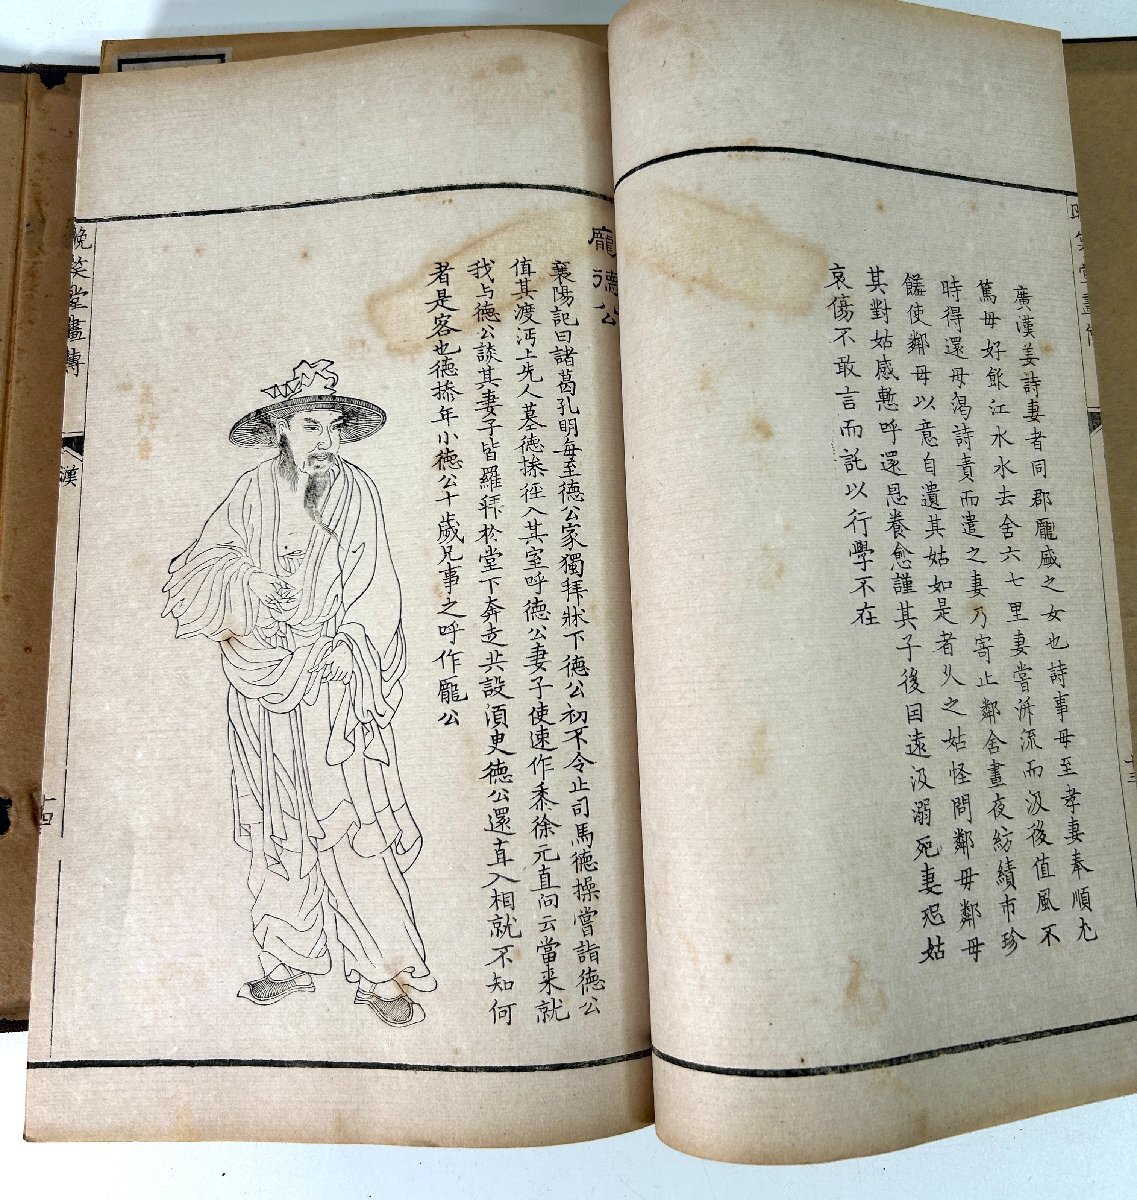 廣漢姜詩妻者同郡龐盛之女也詩事母至孝妻奉順尤
篤母好飲江水水去舍六七里妻嘗泝流而汲後值風不
時得還母渴詩責而遣之妻乃寄止鄰舍晝夜紡績市珍
饈使鄰母以意自遺其姑如是者久之姑怪問鄰母鄰母
其對姑感慙呼還恩養愈謹其子後因遠汲溺死妻恐姑
哀傷不敢言而託以行學不在
龐德公
襄陽記曰諸葛孔明每至德公家獨拜牀下德公初不令止司馬德操嘗詣德公
值其渡沔上先人墓德操徑入其室呼德公妻子使速作黍徐元直向云當來就
我与德公談其妻子皆羅拜於堂下奔走共設須臾德公還直入相就不知何
者是客也德操年小德公十歲兄事之呼作龐公
晚笑堂畫傳
漢
十四
十三